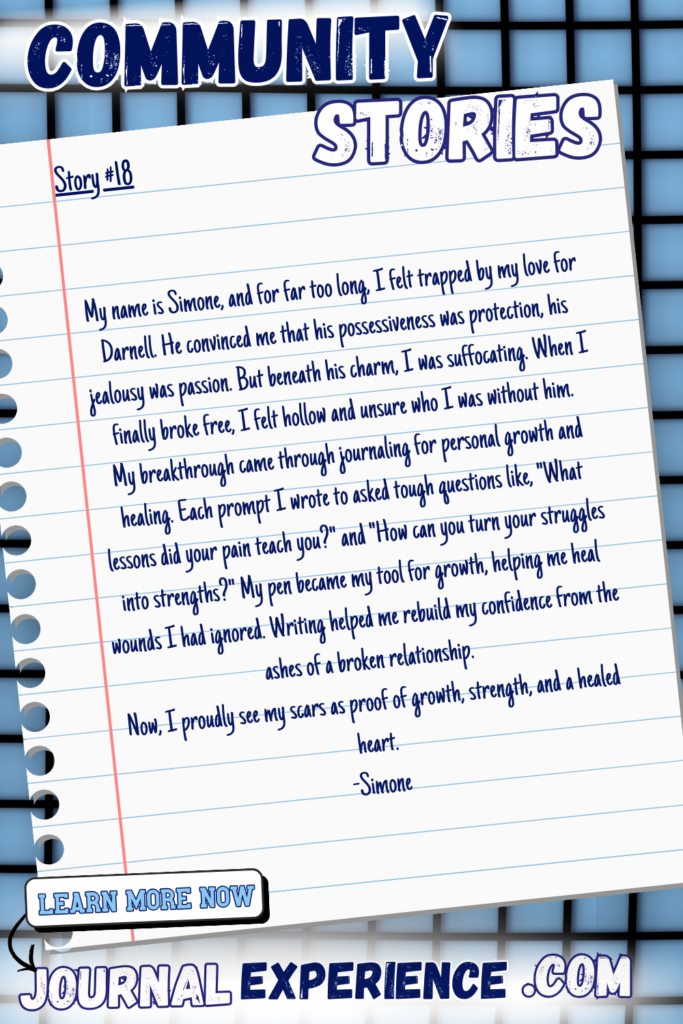 COMMUNITY
STORIES
Story #18
My name is Simone, and for far too long, I felt trapped by my love for
Darnell. He convinced me that his possessiveness was protection, his
jealousy was passion. But beneath his charm, I was suffocating. When I
finally broke free, I felt hollow and unsure who I was without him.
My breakthrough came through journaling for personal growth and
healing. Each prompt I wrote to asked tough questions like, "What
lessons did your pain teach you?" and "How can you turn your struggles
into strengths?" My pen became my tool for growth, helping me heal
wounds I had ignored. Writing helped me rebuild my confidence from the
ashes of a broken relationship.
Now, I proudly see my scars as proof of growth, strength, and a healed
heart.
-Simone
LEARN MORE NOW
JOURNAL EXPERIENCE .COM